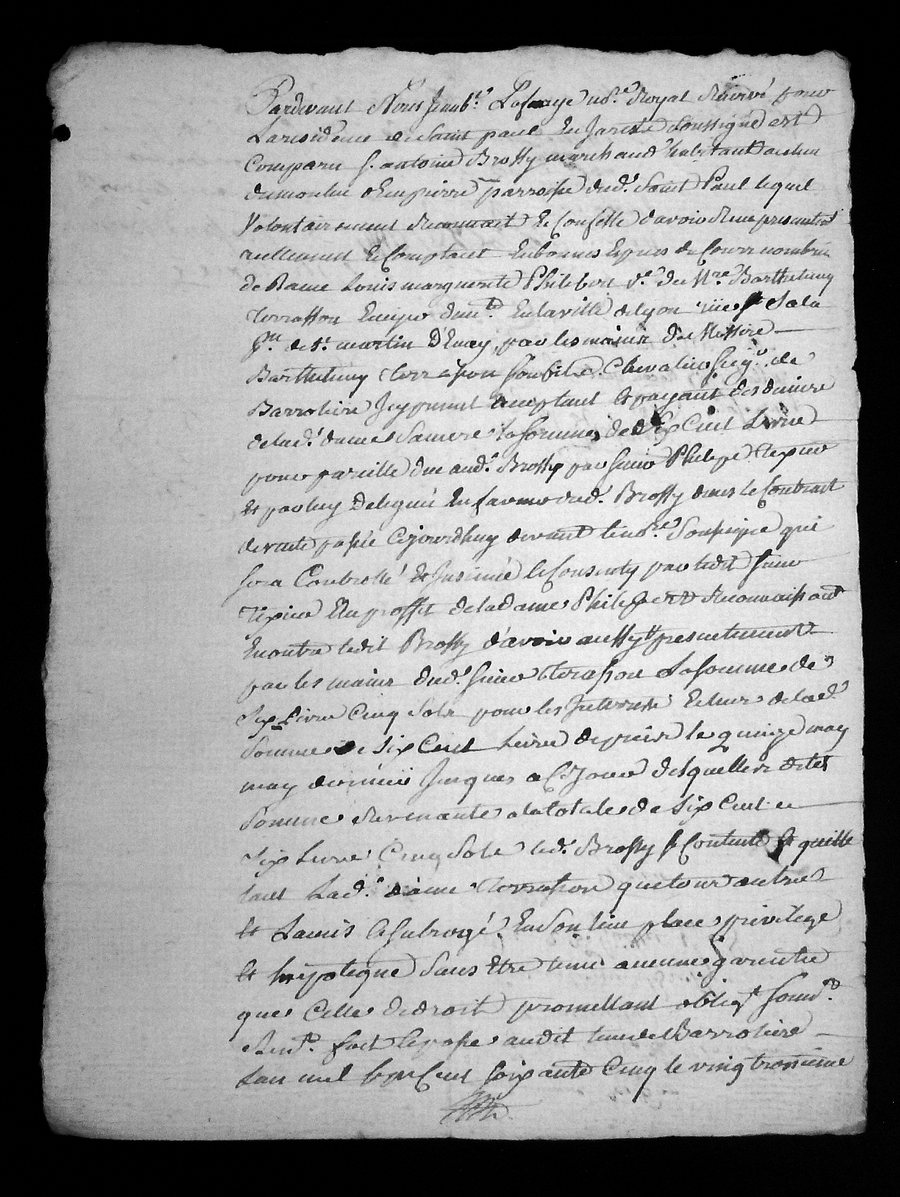 Pardevant Nous Jean b.te Lafaye no.re Royal Reservé pour
La residence de Saint paul En Jarest Soussigné est
Comparu S. antoine Brossy marchand habitant au lieu
du moulin d'Empierre parroisse dud. Saint Paul lequel
Volontairement Reconnoit Et Confesse d'avoir Reçu presentem.t
reellement Et Comptant En bonnes Espèces de Cours nombrée
de Dame Louis marguerite Philibert v.e de M.re Barthelemy
Terrasson Ecuyer dem.te En la ville de Lyon rüe Sala
p.sse de S.t martin D'Enay, par les mains De Messire
Barthelemy Terrasson Son fils, Chevalier Seig.r de
Barroliere Icy present acceptant Et payant des deniers
de lad. dame Sa mere la Somme de Six Cent Livre
pour pareille due aud. Brossy par Sieur Philipe Tixier
Et par luy Deleguée En faveur dud. Brossy dans le Contrait
de vente passé Cejourdhuy devant le no.re Soussigné qui
Sera Controllé Et Insinué le Consenty par ledit Sieur
Tixier En proffit de la dame Philibert Reconnaissant
Encontre ledit Brossy d'avoir aussy presentement
par les mains dud. Sieur Terasson La Somme de
Six Livre Cinq Sols pour les Interests Echus de lad.
Somme de Six Cent Livre depuis le quinze may
may dernier Jusques a Ce Jour Desquelles dites
Somme Revenante a la totale de Six Cent
Six Livre Cinq Sols led. Brossy Se Contente Et quitte
tant Lad. Dame Terrasson que tour autre
Et La mis & Subrogé En Son lieu place privilege
Et hypoteque Sans Etre tenu aucune garentie
que Celle de droit promettant oblig.t Soum.t
Renº. fait Et passé audit lieu de Barroliere
Lan mil Sept Cent Soixante Cinq le vingt troisieme